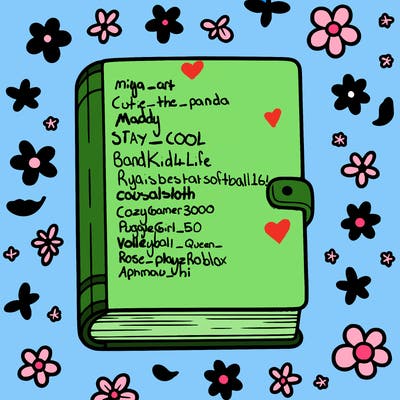 miga_art
Cutie_the_panda
Maddy
STAY_COOL
BandKid4Life
Ryaisbestatsoftball16!
causalsloth
CozyGamer3000
PuggleGirl_50
Volleyball_Queen_
Rose_playzRoblox
Aphmau_hi